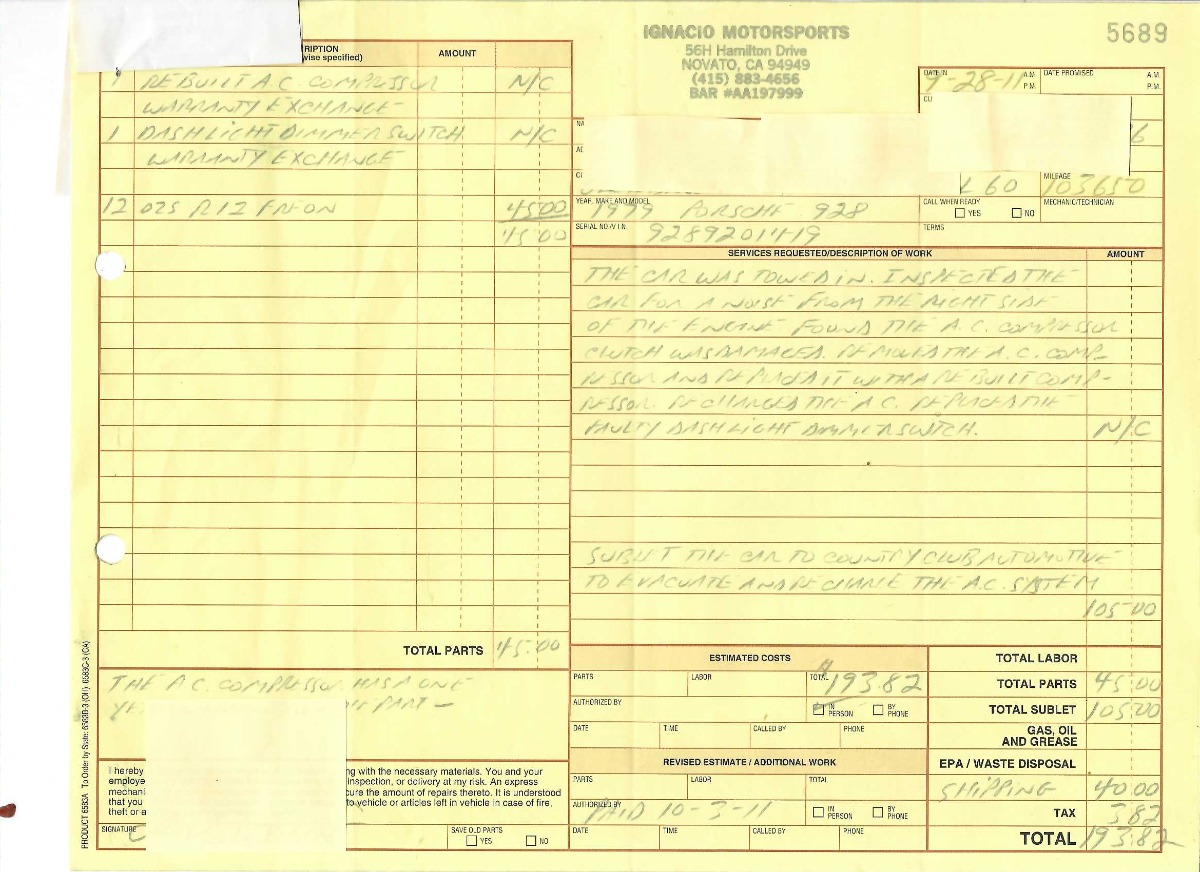 IGNACIO MOTORSPORTS
56H Hamilton Drive
NOVATO, CA 94949
(415) 883-4656
BAR #AA197999
5689
RIPTION
wise specified)
AMOUNT
1 REBUILT A.C. COMPRESSOR N/C
WARRANTY EXCHANGE
1 DASHLIGHT DIMMER SWITCH N/C
WARRANTY EXCHANGE
12 OZS R12 FREON 45.00
45.00
TOTAL PARTS 45.00
THE A.C. COMPRESSOR HAS A ONE
PART-
I hereby
ng with the necessary materials. You and your
employe
inspection, or delivery at my risk. An express
mechani
cure the amount of repairs thereto. It is understood
that you
to vehicle or articles left in vehicle in case of fire,
theft or a
SIGNATURE
SAVE OLD PARTS
YES NO
PRODUCT 6583A To Order by State: 6583B-3 (OH) 6583C-3 (CA)
DATE IN 9-28-11 A.M. P.M.
DATE PROMISED A.M. P.M.
CU
NA
AD
CI
6
60
MILEAGE 103650
YEAR, MAKE AND MODEL 1979 PORSCHE 928
CALL WHEN READY YES NO
MECHANIC/TECHNICIAN
SERIAL NO./V.I.N. 9289201419
TERMS
SERVICES REQUESTED/DESCRIPTION OF WORK AMOUNT
THE CAR WAS TOWED IN. INSPECTED THE
CAR FOR A NOISE FROM THE RIGHT SIDE
OF THE ENGINE FOUND THE A.C. COMPRESSOR
CLUTCH WAS DAMAGED. REMOVED THE A.C. COMP-
RESSOR AND REPLACED IT WITH A REBUILT COMP-
RESSOR. RECHARGED THE A.C. REPLACED THE
FAULTY DASHLIGHT DIMMER SWITCH. N/C
SUBLET THE CAR TO COUNTRY CLUB AUTOMOTIVE
TO EVACUATE AND RECHARGE THE A.C. SYSTEM
105.00
ESTIMATED COSTS
PARTS LABOR TOTAL 193.82
AUTHORIZED BY
IN PERSON BY PHONE
DATE TIME CALLED BY PHONE
REVISED ESTIMATE / ADDITIONAL WORK
PARTS LABOR TOTAL
AUTHORIZED BY PAID 10-3-11
IN PERSON BY PHONE
DATE TIME CALLED BY PHONE
TOTAL LABOR
TOTAL PARTS 45.00
TOTAL SUBLET 105.00
GAS, OIL AND GREASE
EPA / WASTE DISPOSAL
SHIPPING 40.00
TAX 3.82
TOTAL 193.82